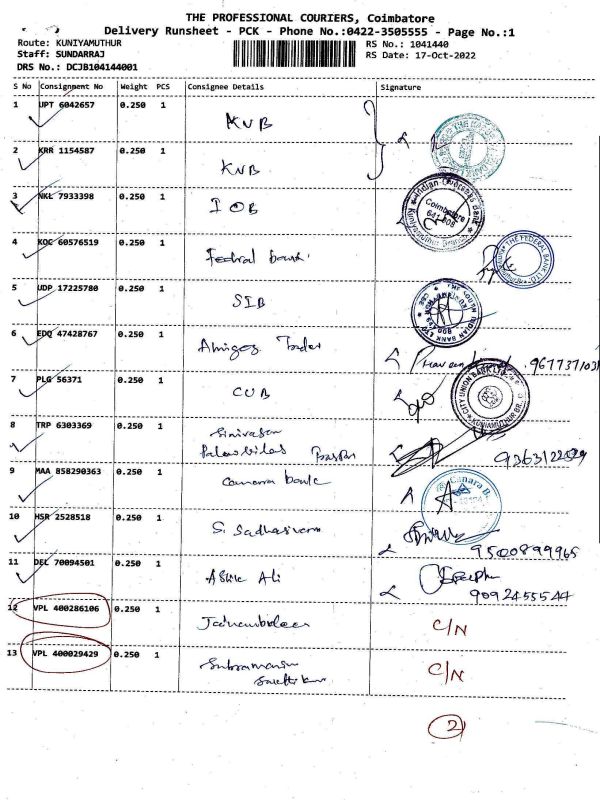 THE PROFESSIONAL COURIERS, Coimbatore
Delivery Runsheet - PCK - Phone No.:0422-3505555 - Page No.:1
Route: KUNIYAMUTHUR RS No.: 1041440
Staff: SUNDARRAJ RS Date: 17-Oct-2022
DRS No.: DCJB104144001
S No Consignment No Weight PCS Consignee Details Signature
1 UPT 6042657 0.250 1 KVB
2 KRR 1154587 0.250 1 KVB
3 NKL 7933398 0.250 1 IOB
4 KOC 60576519 0.250 1 Federal bank
5 UDP 17225780 0.250 1 SIB
6 EDQ 47428767 0.250 1
7 PLG 56371 0.250 1 CUB
8 TRP 6303369 0.250 1 Srinivasan
9363122029
9 MAA 858290363 0.250 1 Canara bank
10 HSR 2528518 0.250 1 S. Sadhasivam
9500899965
11 DEL 70094501 0.250 1 Ali
9092455544
12 VPL 400286106 0.250 1 C/N
13 VPL 400029429 0.250 1 C/N
2